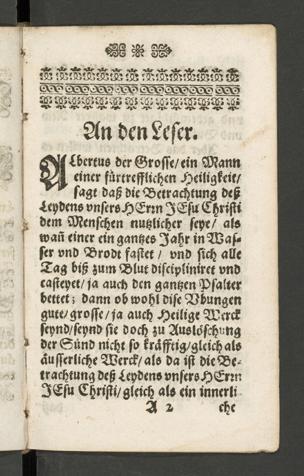 An den Leser.
Albertus der Grosse/ ein Mann
einer fürtrefflichen Heiligkeit/
sagt daß die Betrachtung deß
Leydens vnsers HErrn JEsu Christi
dem Menschen nutzlicher seye/ als
wañ einer ein gantzes Jahr in Was-
ser vnd Brodt fastet / vnd sich alle
Tag biß zum Blut discipliniret vnd
casteyet/ ja auch den gantzen Psalter
bettet; dann ob wohl dise Vbungen
gute/ grosse/ ja auch Heilige Werck
seynd/ seynd sie doch zu Auslöschung
der Sünd nicht so kräfftig/ gleich als
äusserliche Werck/ als da ist die Be-
trachtung deß Leydens vnsers HErrn
JEsu Christi/ gleich als ein innerli
A 2 che